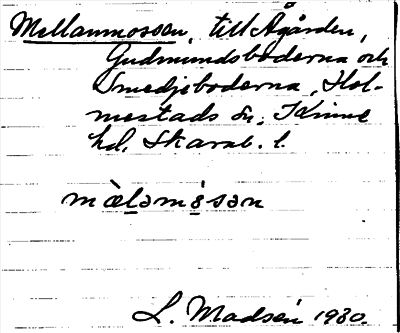 Mellanmossen, till Ågården,
Gudmundsboderna och
Smedjeboderna, Hol-
mestads sn, Kinne
hd, Skarab. l.
mὰləmɔ̀sən
L. Madsén 1930